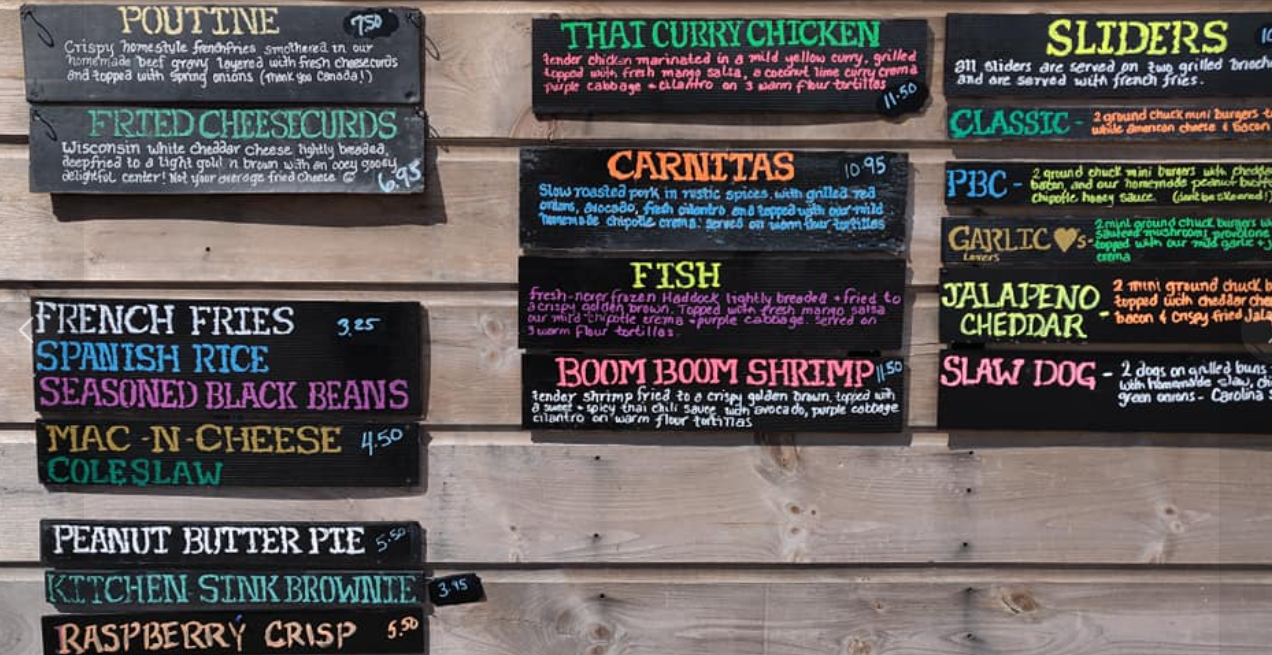 POUTINE 7.50
Crispy homestyle frenchfries smothered in our
homemade beef gravy layered with fresh cheesecurds
and topped with spring onions (thank you Canada!)
FRIED CHEESECURDS
Wisconsin white cheddar cheese lightly breaded,
deepfried to a light gold n brown with an ooey gooey
delightful center! Not your average fried cheese 6.95
FRENCH FRIES 3.25
SPANISH RICE
SEASONED BLACK BEANS
MAC-N-CHEESE 4.50
COLESLAW
PEANUT BUTTER PIE 5.50
KITCHEN SINK BROWNIE 3.95
RASPBERRY CRISP 5.50
THAT CURRY CHICKEN
tender chicken marinated in a mild yellow curry, grilled
topped with fresh mango salsa, a coconut lime curry crema
purple cabbage + cilantro on 3 warm flour tortillas
11.50
CARNITAS 10.95
Slow roasted pork in rustic spices, with grilled red
onions, avocado, fresh cilantro and topped with our mild
homemade chipotle crema. served on warm flour tortillas
FISH
fresh-never frozen Haddock lightly breaded + fried to
a crispy golden brown. Topped with fresh mango salsa
our mild chipotle crema + purple cabbage. Served on
3 warm flour tortillas.
BOOM BOOM SHRIMP 11.50
tender shrimp fried to a crispy golden brown, topped with
a sweet + spicy thai chili sauce with avocado, purple cabbage
cilantro on warm flour tortillas
SLIDERS
all sliders are served on two grilled brioche
and are served with french fries.
CLASSIC - 2 ground chuck mini burgers
white american cheese & bacon
PBC - 2 ground chuck mini burgers with chedda
bacon, and our homemade peanut butt
chipotle honey sauce. (dont be skeered!)
GARLIC ♥s- 2 mini ground chuck burgers
Lovers sauteed mushrooms, provolone
topped with our mild garlic +
crema
JALAPENO CHEDDAR - 2 mini ground chuck b
topped with cheddar che
bacon & crispy fried Jala
SLAW DOG - 2 dogs on grilled buns
with homemade slaw, chi
green onions - Carolina S